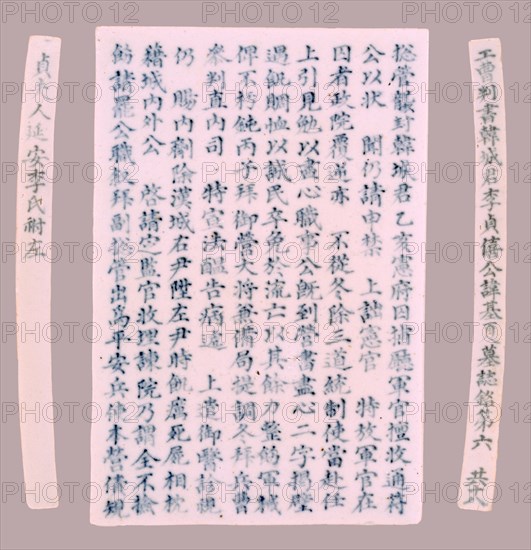 工曹判書韓城君李貞僖公諱基夏墓誌銘第六 共十八
摠管襲封韓城君乙亥憲府因捕廳軍官擅收通符
公以狀 聞仍請申禁 上詘憲官 特放軍官在
囚者政院覆逆亦 不從冬除三道統制使當赴任
上引見勉以盡心職事公旣到營書盡心二字揭壁
過飢賙恤以誠民幸免於流亡以其餘力整飭軍械
俾不朽鈍丙子拜御營大將兼備局提調冬拜兵曹
參判直內司 特宣法醞告病遞 上 御醫診視
仍 賜內劑除漢城右尹陞左尹時飢癘死屍相枕
藉城內外公 啓請定監官收埋諫院乃謂全不檢
飭請罷公職敍拜副摠管出爲平安兵使本營儀
貞夫人延安李氏祔左